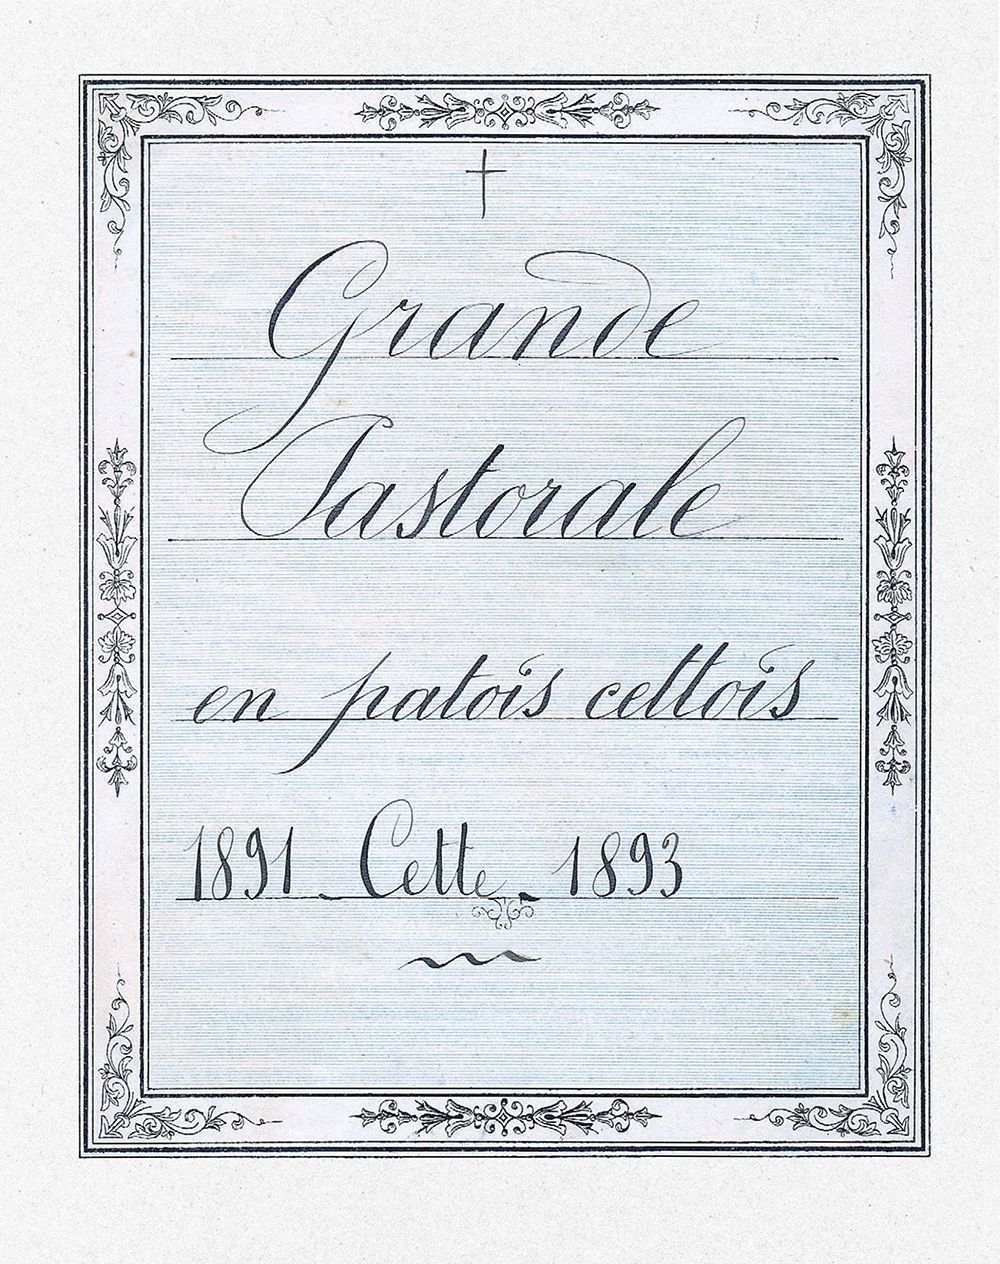 Grande
Pastorale
en patois cettois
1891 - Cette - 1893